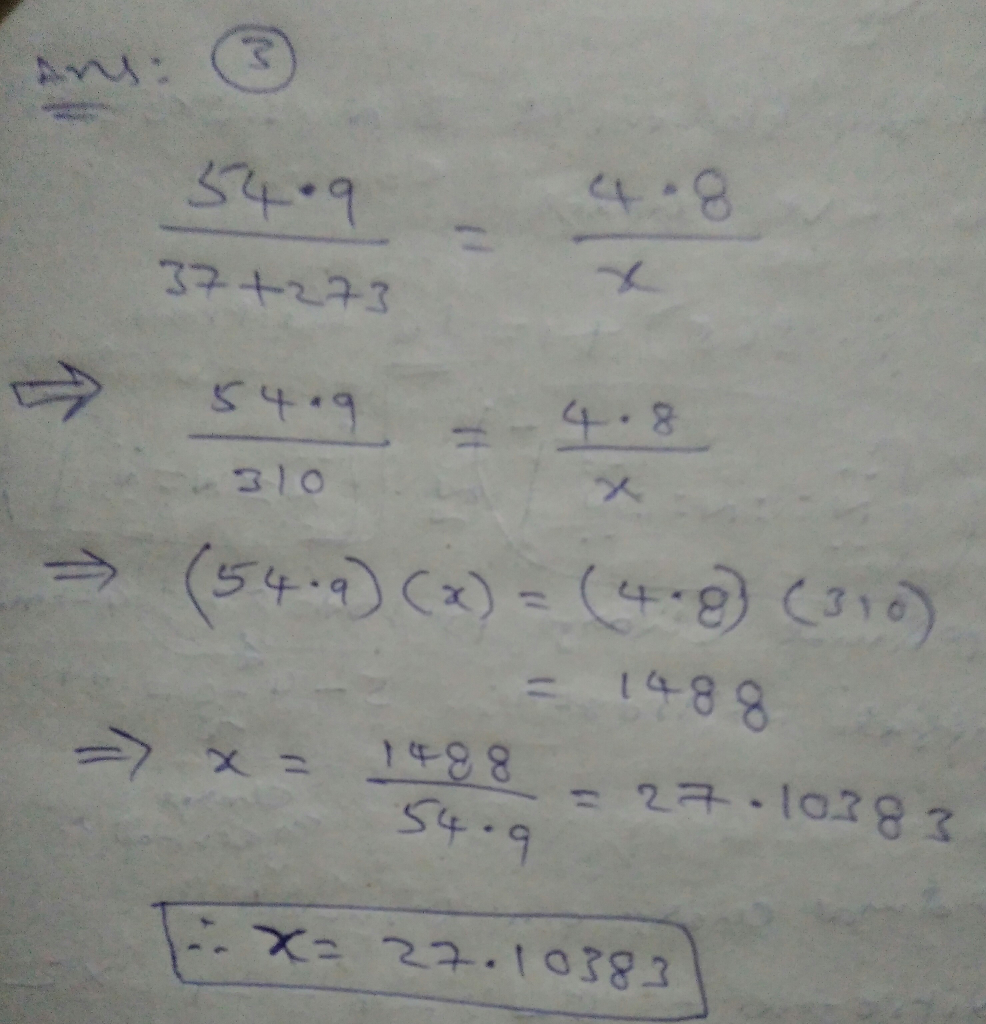 Ans: ③
54.9 / 37+273 = 4.8 / x
⇒ 54.9 / 310 = 4.8 / x
⇒ (54.9) (x) = (4.8) (310)
= 1488
⇒ x = 1488 / 54.9 = 27.10383
∴ x = 27.10383